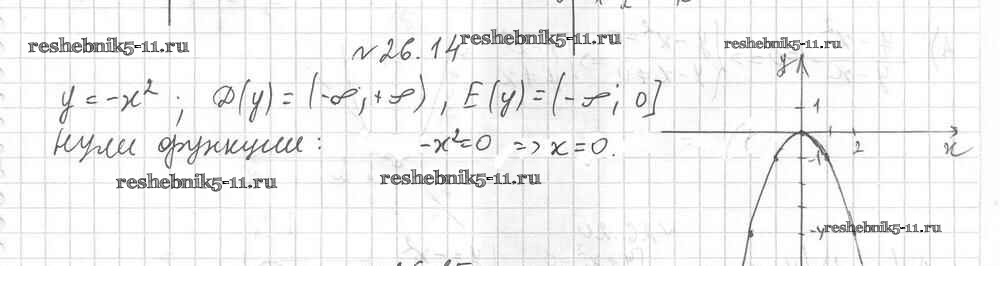 reshebnik5-11.ru
reshebnik5-11.ru
№ 26.14
reshebnik5-11.ru
y = -x²; D(y) = (-∞; +∞), E(y) = (-∞; 0]
Нули функции: -x² = 0 => x = 0.
reshebnik5-11.ru
reshebnik5-11.ru
y
1
-1
2
x
-4
reshebnik5-11.ru